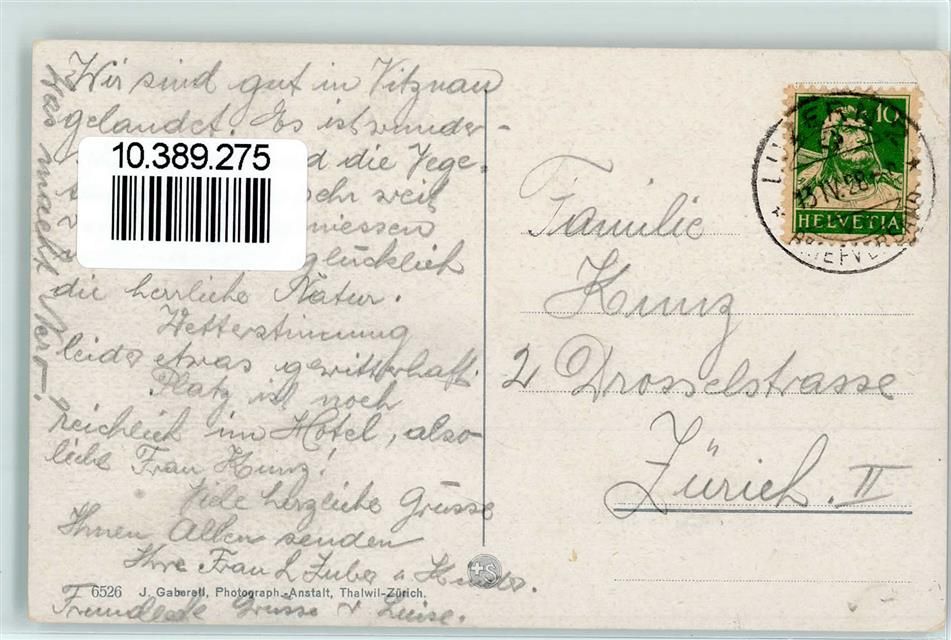 Wir sind gut in Vitznau
gelandet. Es ist wunder-
d die Vege-
sehr weit
niessen
glücklich
die herrliche Natur.
Wetterstimmung
leider etwas gewitterhaft.
Platz ist noch
reichlich im Hotel, also
liebe Frau Kunz!
Viele herzliche Grüsse
Ihnen Allen senden
Ihre Frau L Zuber u Kinder.
Freundliche Grüsse v Luise.
Was macht Vero?
10.389.275
10
HELVETIA
LUZERN
13.IV.28
BRIEFVERSAND
Familie
Kunz
2 Drosselstrasse
Zürich. II
6526 J. Gaberell, Photograph.-Anstalt, Thalwil-Zürich.
+S